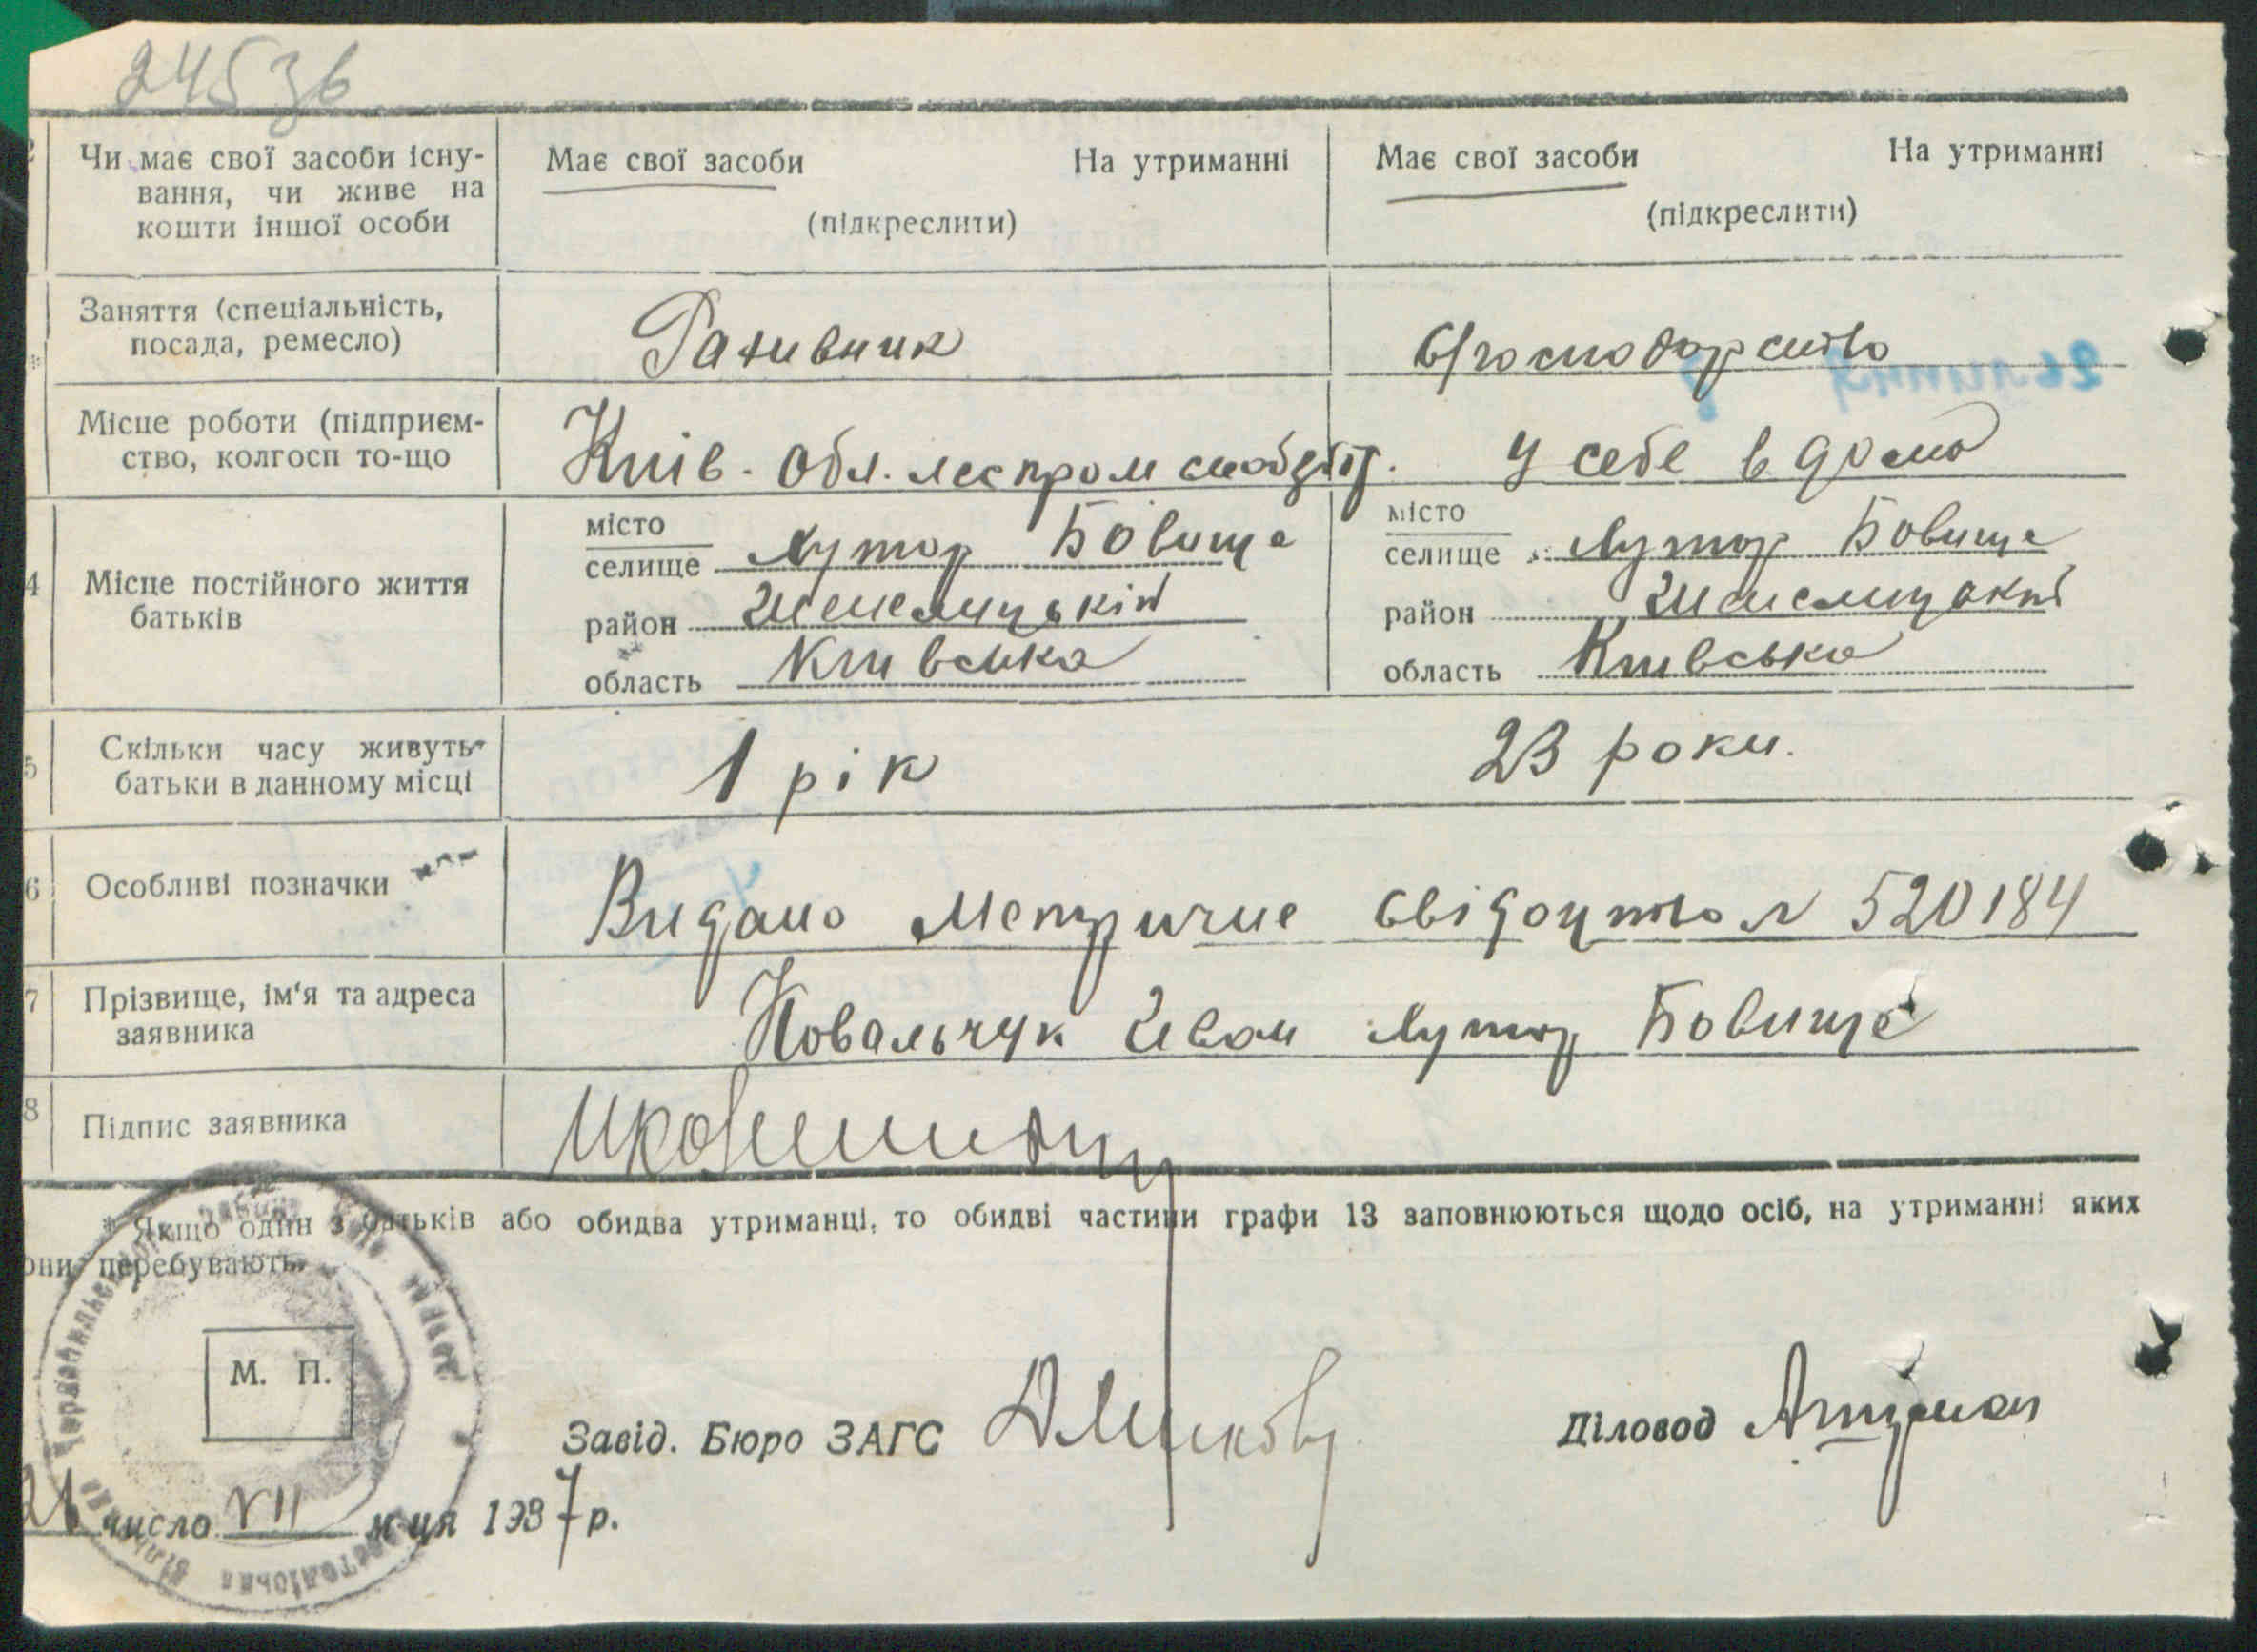 24536
Чи має свої засоби існу-
вання, чи живе на
кошти іншої особи
Має свої засоби На утриманні
(підкреслити)
Має свої засоби На утриманні
(підкреслити)
Заняття (спеціальність,
посада, ремесло)
господарство
Місце роботи (підприєм-
ство, колгосп то-що
Київ. Обл. леспром
У себе в дома
4 Місце постійного життя
батьків
місто
селище Хутор Бовище
район
область Київська
місто
селище Хутор Бовище
район
область Київська
5 Скільки часу живуть
батьки в данному місці
1 рік
23 роки.
6 Особливі позначки
Видано Метричне свідоцтво № 520184
7 Прізвище, ім'я та адреса
заявника
Ковальчук Иван Хутор Бовище
8 Підпис заявника
* Якщо один з батьків або обидва утриманці, то обидві частини графи 13 заповнюються щодо осіб, на утриманні яких
они перебувають.
М. П.
Завід. Бюро ЗАГС
Діловод
число VII м-ця 1937 р.